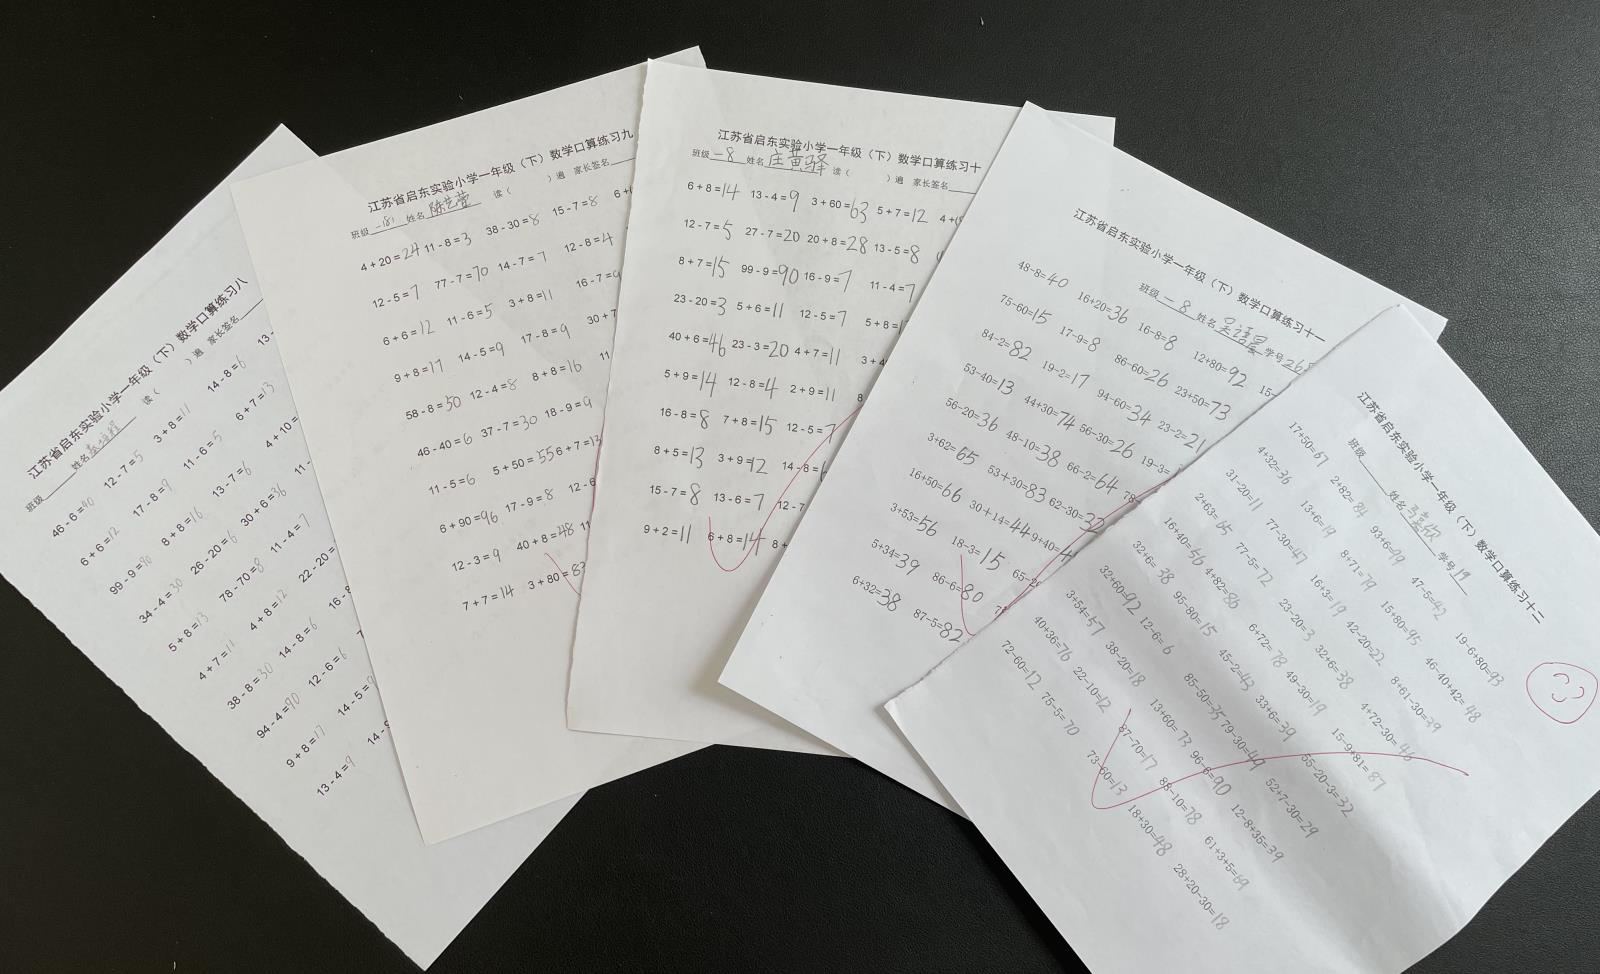 江苏省启东实验小学一年级（下）数学口算练习八
班级 姓名 读（ ）遍 家长签名
46-6=40 12-7=5 3+8=11 14-8=6 13-
6+6=12 17-8=9 11-6=5 6+7=13
99-9=90 8+8=16 13-7=6 4+10=
34-4=30 26-20=6 30+6=36 11-
5+8=13 78-70=8 11-4=7
4+7=11 4+8=12 22-20=
38-8=30 14-8=6 16-8
94-4=90 12-6=6 7
9+8=17 14-5=9
13-4=9 14-9
江苏省启东实验小学一年级（下）数学口算练习九
班级 一(8) 姓名 陈艺萱 读（ ）遍 家长签名
4+20=24 11-8=3 38-30=8 15-7=8 6+
12-5=7 77-7=70 14-7=7 12-8=4
6+6=12 11-6=5 3+8=11 16-7=9
9+8=17 14-5=9 17-8=9 30+7
58-8=50 12-4=8 8+8=16 11
46-40=6 37-7=30 18-9=9
11-5=6 5+50=55 6+7=13
6+90=96 17-9=8 12-6
12-3=9 40+8=48 11
7+7=14 3+80=83
江苏省启东实验小学一年级（下）数学口算练习十
班级 一8 姓名 庄黄驿 读（ ）遍 家长签名
6+8=14 13-4=9 3+60=63 5+7=12 4+
12-7=5 27-7=20 20+8=28 13-5=8
8+7=15 99-9=90 16-9=7 11-4=7
23-20=3 5+6=11 12-5=7 5+8=1
40+6=46 23-3=20 4+7=11 3+4
5+9=14 12-8=4 2+9=11 8
16-8=8 7+8=15 12-5=7
8+5=13 3+9=12 14-8=6
15-7=8 13-6=7 12-7
9+2=11 6+8=14 8+
江苏省启东实验小学一年级（下）数学口算练习十一
班级 一8 姓名 学号 26
48-8=40 16+20=36 16-8=8 12+80=92 15-
75-60=15 17-9=8 86-60=26 23+50=73
84-2=82 19-2=17 94-60=34 23-2=21
53-40=13 44+30=74 56-30=26 19-3=
56-20=36 48-10=38 66-2=64 78-
3+62=65 53+30=83 62-30=32
16+50=66 30+14=44 9+40=4
3+53=56 18-3=15 65-2
5+34=39 86-6=80 7
6+32=38 87-5=82
江苏省启东实验小学一年级（下）数学口算练习十二
班级 姓名 学号 19
17+50=67 2+82=84 93+6=99 47-5=42 19-6+80=93
4+32=36 13+6=19 8+71=79 15+80=95 46-40+42=48
31-20=11 77-30=47 16+3=19 42-20=22 8+61-30=39
2+63=65 77-5=72 23-20=3 32+6=38 4+72-30=46
16+40=56 4+82=86 6+72=78 49-30=19 15-9+81=87
32+6=38 95-80=15 45-2=43 33+6=39 55-20-3=32
32+60=92 12-6=6 85-50=35 79-30=49 52+7-30=29
3+54=57 38-20=18 13+60=73 96-6=90 12-8+35=39
40+36=76 22-10=12 87-70=17 88-10=78 61+3+5=69
72-60=12 75-5=70 73-60=13 18+30=48 28+20-30=18